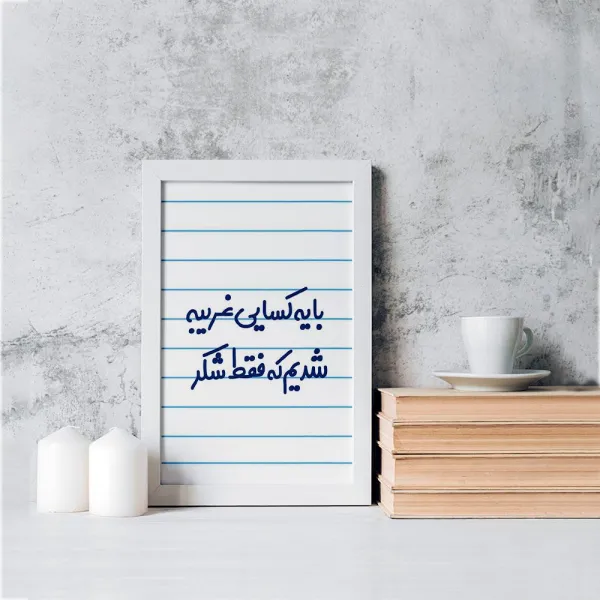 با یه کسایی غریبه
شدیم که فقط شکر